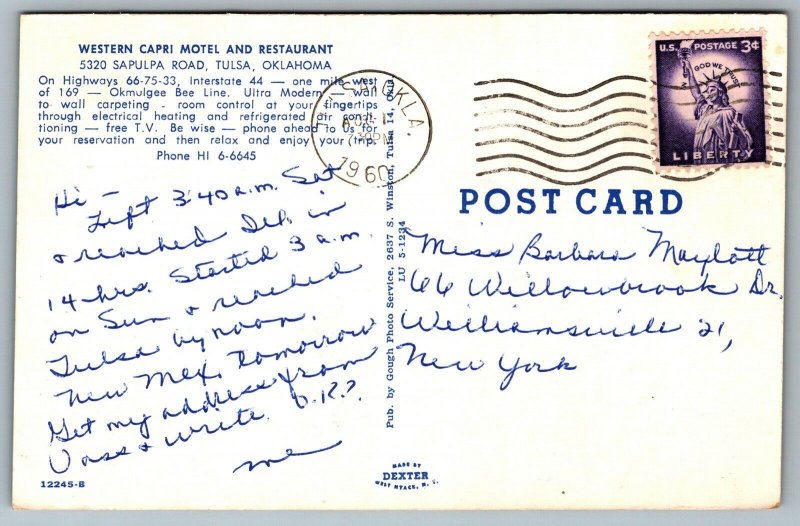 WESTERN CAPRI MOTEL AND RESTAURANT
5320 SAPULPA ROAD, TULSA, OKLAHOMA
On Highways 66-75-33, Interstate 44 — one mile west
of 169 — Okmulgee Bee Line. Ultra Modern — wall
to wall carpeting - room control at your fingertips
through electrical heating and refrigerated air condi-
tioning — free T.V. Be wise — phone ahead to us for
your reservation and then relax and enjoy your trip.
Phone HI 6-6645
Hi —
Left 3:40 a.m. Sat
& reached in
14 hrs. Started 3 a.m.
on Sun & reached
Tulsa by noon.
New Mex. tomorrow
Get my address from
& write. O.K.?
me
12245-B
Pub. by Gough Photo Service, 2637 S. Winston, Tulsa 14, Okla
LU 5-1234
MADE BY
DEXTER
WEST NYACK, N. Y.
TULSA, OKLA.
7:30 PM
1960
U.S. POSTAGE 3¢
IN GOD WE TRUST
LIBERTY
POST CARD
Miss Barbara Maylott
66 Willowbrook Dr.
Williamsville 21,
New York